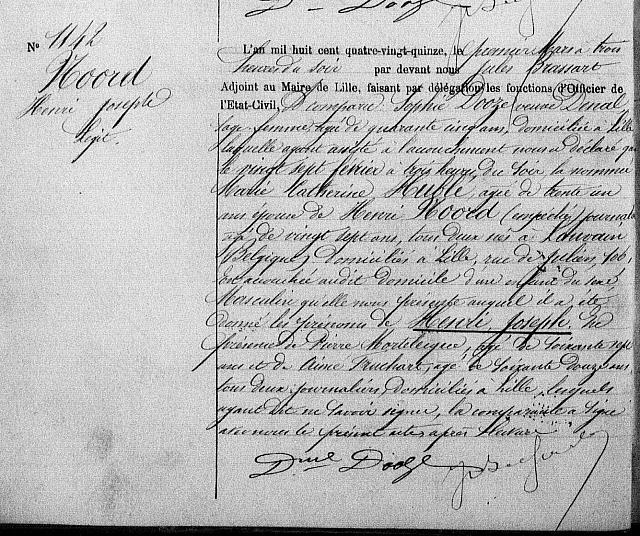 Dme Dooze
N° 1142
Noord
Henri Joseph
Légit.
L'an mil huit cent quatre-vingt-quinze, le premier Mars à trois
heures du soir par devant nous Jules Brassart
Adjoint au Maire de Lille, faisant par délégation les fonctions d'Officier de
l'Etat-Civil, a comparu Sophie Dooze veuve
sage femme, âgée de quarante cinq ans, domiciliée à Lille
laquelle ayant assisté à l'accouchement nous a déclaré que
le vingt sept février à trois heures du soir la nommée
Marie Catherine agée de trente un
ans épouse de Henri Noord (empêché) journalier
âgé de vingt sept ans, tous deux nés à Louvain
(Belgique) domiciliés à Lille, rue de Juliers, 106,
est accouchée audit domicile d'un enfant du sexe
Masculin qu'elle nous présente auquel il a été
donné les prénoms de Henri Joseph. En
présence de Pierre âgé de soixante sept
ans et de Aimé Truchart, âgé de soixante douze ans
tous deux journaliers, domiciliés à Lille, lesquels
ayant dit ne savoir signer, la comparante a signé
avec nous le présent acte après lecture
Dme Dooze